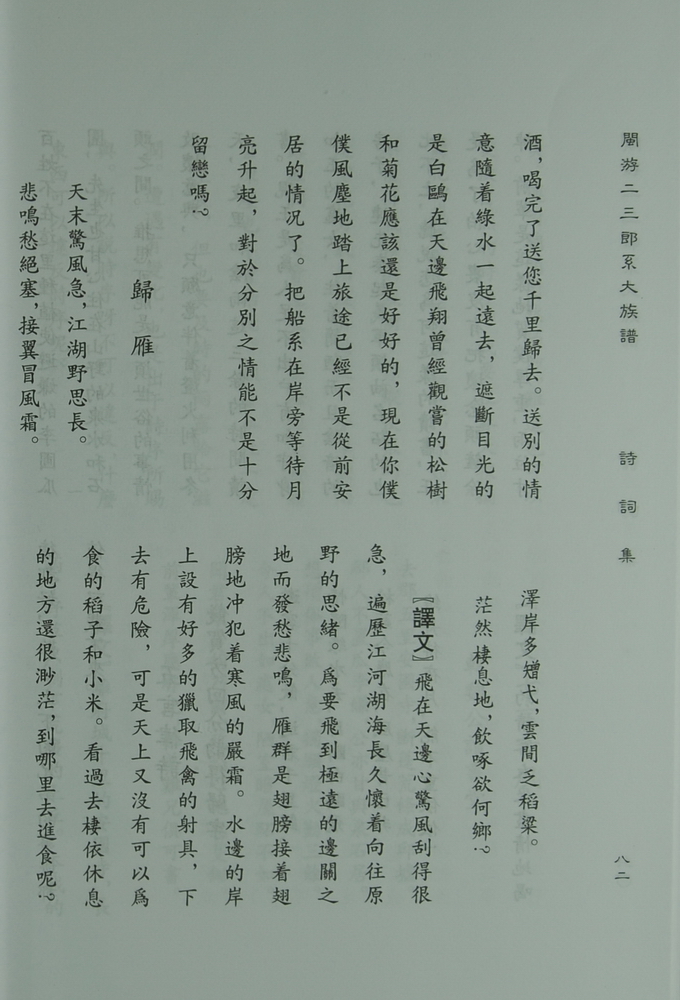 閩游二三郎系大族譜 詩詞集 八二
酒，喝完了送您千里歸去。送別的情
意隨着綠水一起遠去，遮斷目光的
是白鷗在天邊飛翔曾經觀嘗的松樹
和菊花應該還是好好的，現在你僕
僕風塵地踏上旅途已經不是從前安
居的情况了。把船系在岸旁等待月
亮升起，對於分別之情能不是十分
留戀嗎？
歸雁
天末驚風急，江湖野思長。
悲鳴愁絕塞，接翼冒風霜。
澤岸多矰弋，雲間乏稻粱。
茫然棲息地，飲啄欲何鄉？
〖譯文〗飛在天邊心驚風刮得很
急，遍歷江河湖海長久懷着向往原
野的思緒。爲要飛到極遠的邊關之
地而發愁悲鳴，雁群是翅膀接着翅
膀地冲犯着寒風的嚴霜。水邊的岸
上設有好多的獵取飛禽的射具，下
去有危險，可是天上又沒有可以爲
食的稻子和小米。看過去棲依休息
的地方還很渺茫，到哪里去進食呢？